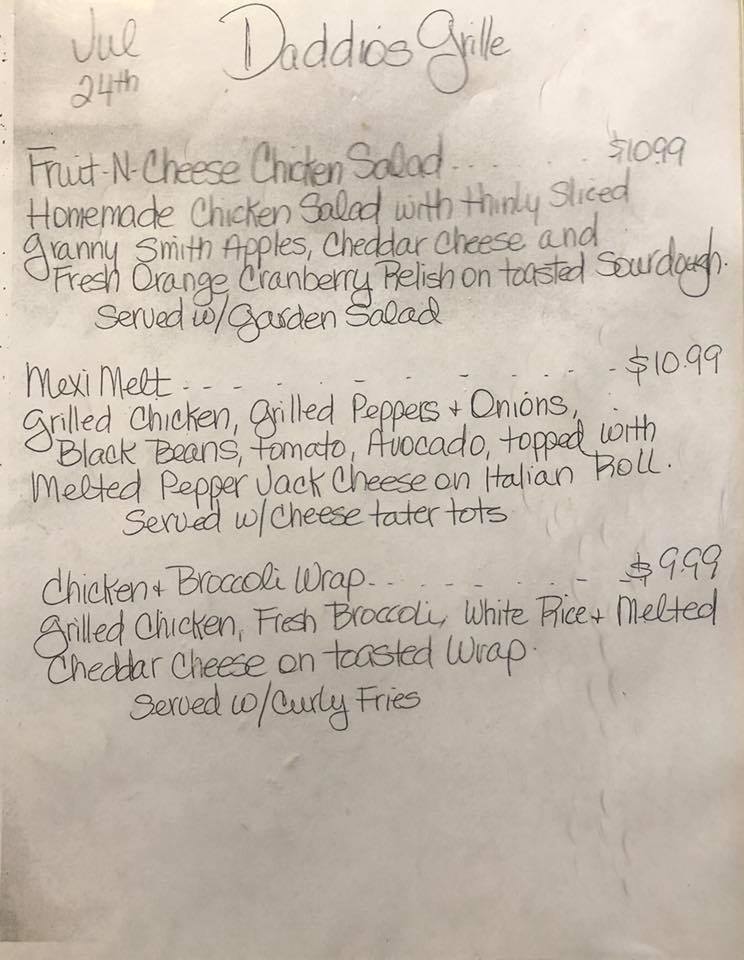 Jul Daddios Grille
24th
Fruit-N-Cheese Chicken Salad... . . . . $10.99
Homemade Chicken Salad with thinly Sliced
Granny Smith Apples, Cheddar Cheese and
Fresh Orange Cranberry Relish on toasted Sourdough.
Served w/Garden Salad
Mexi Melt - - - - - - - - - - - $10.99
Grilled Chicken, Grilled Peppers + Onions,
Black Beans, tomato, Avocado, topped with
Melted Pepper Jack Cheese on Italian Roll.
Served w/Cheese tater tots
Chicken + Broccoli Wrap - - - - - - - - - $9.99
Grilled Chicken, Fresh Broccoli, White Rice + Melted
Cheddar Cheese on toasted Wrap.
Served w/Curly Fries